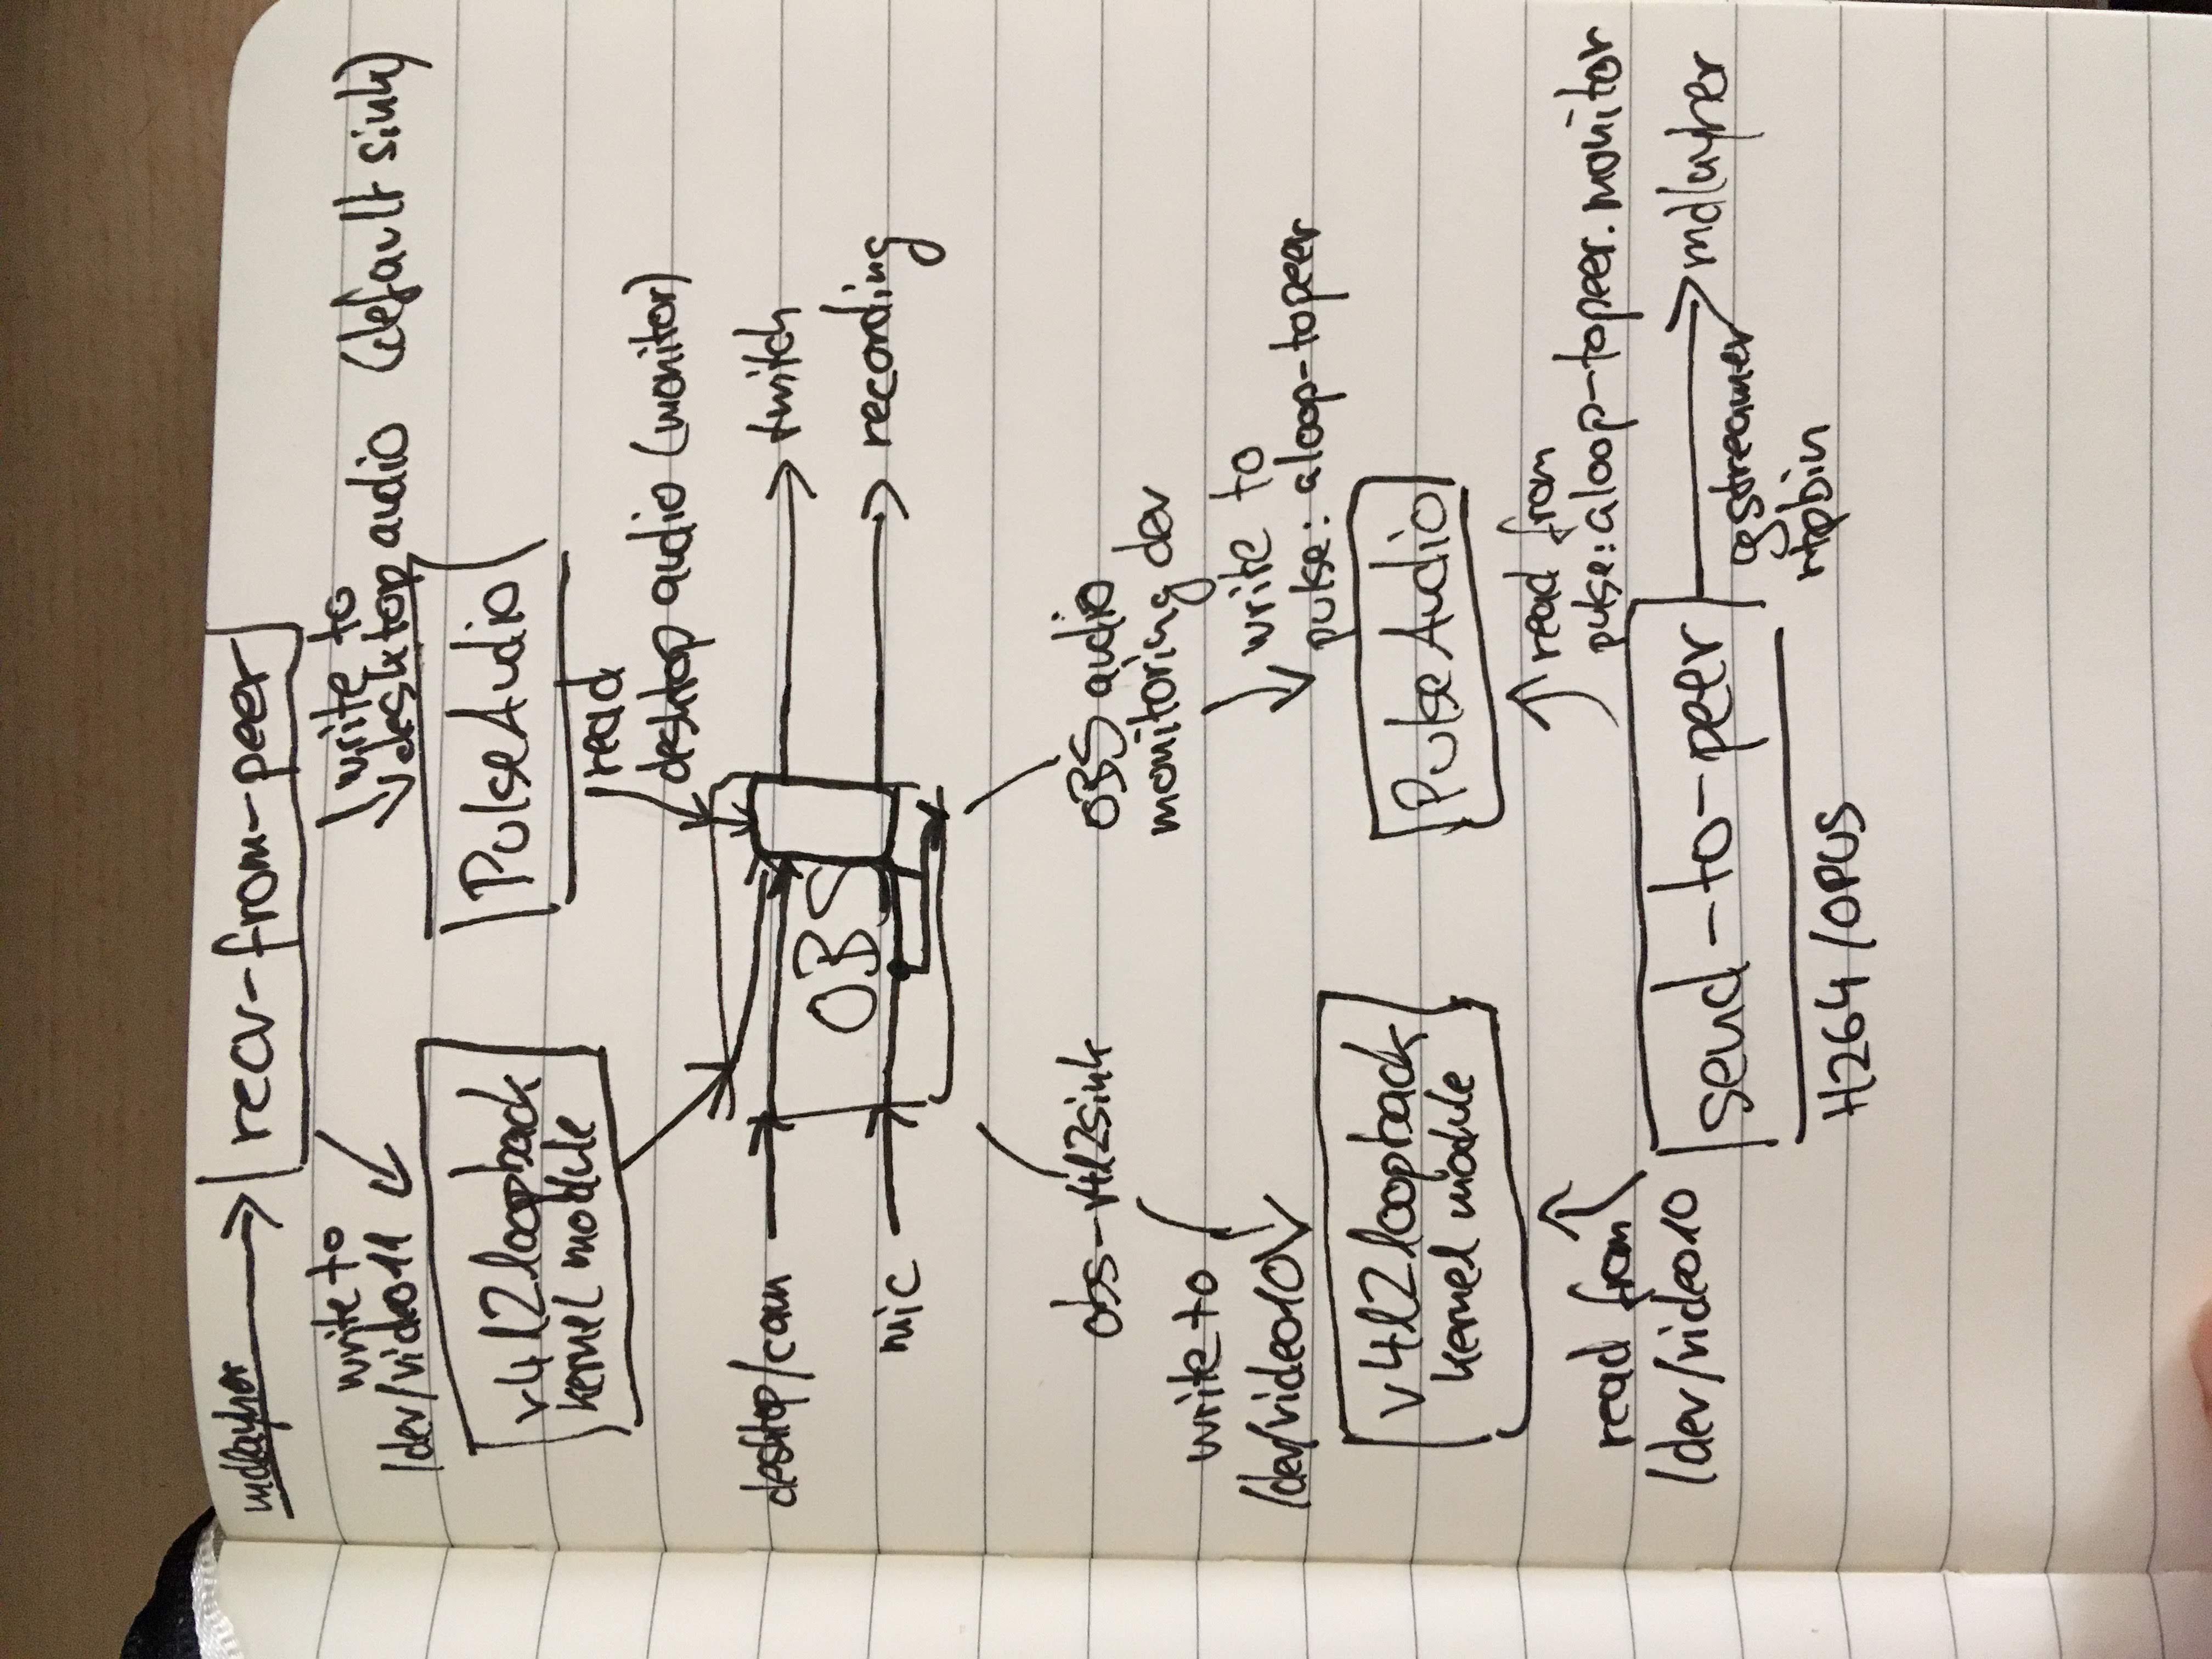 mdlayher
recv-from-peer
write to
/dev/video11
write to
desktop audio (default sink)
v4l2loopback
kernel module
PulseAudio
read
desktop audio (monitor)
desktop/cam
mic
OBS
twitch
recording
obs-v4l2sink
OBS audio
monitoring dev
write to
/dev/video10
write to
pulse: aloop-topeer
v4l2loopback
kernel module
PulseAudio
read from
/dev/video10
read from
pulse:aloop-topeer.monitor
send-to-peer
mdlayher
gstreamer
rtpbin
H264/OPUS